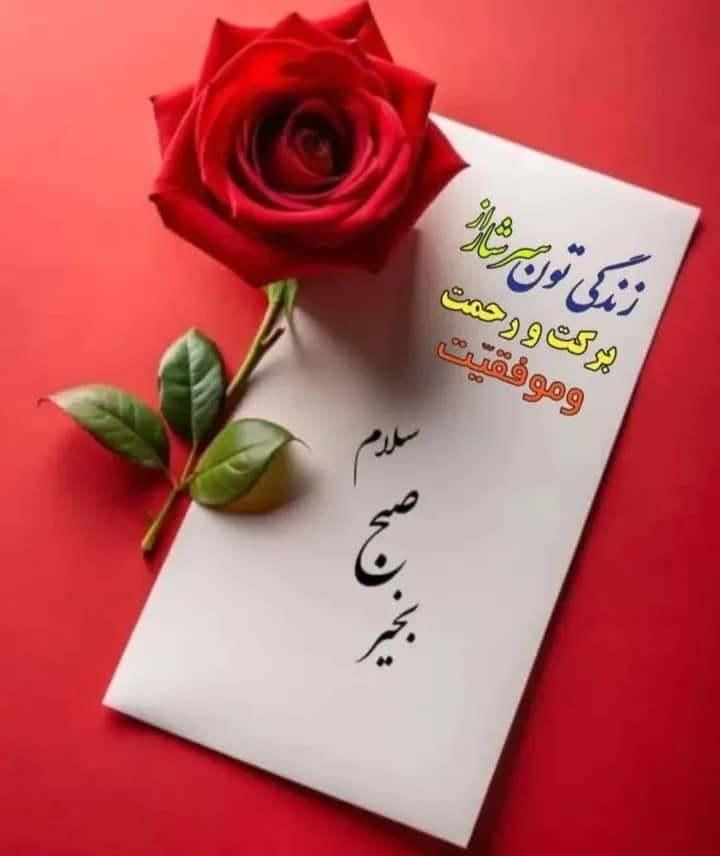 زندگی تون سرشار از
برکت و رحمت
وموفقیّت
سلام
صبح
بخیر